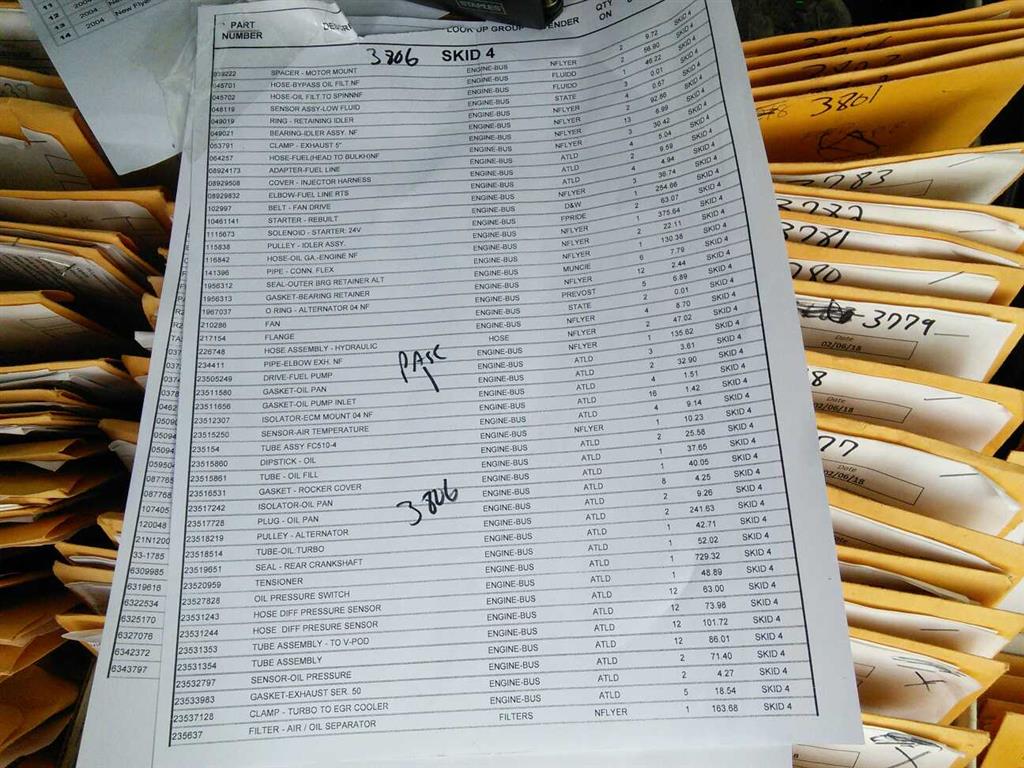 PART NUMBER QTY ON
3806 SKID 4
039222 SPACER - MOTOR MOUNT ENGINE-BUS NFLYER 2 9.72 SKID 4
045701 HOSE-BYPASS OIL FILT.NF ENGINE-BUS FLUIDD 2 56.90 SKID 4
045702 HOSE-OIL FILT.TO SPINNNF ENGINE-BUS FLUIDD 1 46.22 SKID 4
048119 SENSOR ASSY-LOW FLUID ENGINE-BUS STATE 3 0.01 SKID 4
049019 RING - RETAINING IDLER ENGINE-BUS NFLYER 4 0.57 SKID 4
049021 BEARING-IDLER ASSY. NF ENGINE-BUS NFLYER 2 92.86 SKID 4
053791 CLAMP - EXHAUST 5" ENGINE-BUS NFLYER 13 6.99 SKID 4
064257 HOSE-FUEL(HEAD TO BULKH)NF ENGINE-BUS NFLYER 3 30.42 SKID 4
08924173 ADAPTER-FUEL LINE ENGINE-BUS ATLD 4 5.04 SKID 4
08929508 COVER - INJECTOR HARNESS ENGINE-BUS ATLD 2 9.59 SKID 4
08929832 ELBOW-FUEL LINE RTS ENGINE-BUS ATLD 4 4.94 SKID 4
102997 BELT - FAN DRIVE ENGINE-BUS NFLYER 3 36.74 SKID 4
10461141 STARTER - REBUILT ENGINE-BUS D&W 1 254.66 SKID 4
1115673 SOLENOID - STARTER: 24V ENGINE-BUS FPRIDE 2 63.07 SKID 4
115838 PULLEY - IDLER ASSY. ENGINE-BUS NFLYER 1 375.64 SKID 4
116842 HOSE-OIL GA.-ENGINE NF ENGINE-BUS NFLYER 2 22.11 SKID 4
141396 PIPE - CONN. FLEX ENGINE-BUS NFLYER 1 130.38 SKID 4
1956312 SEAL-OUTER BRG RETAINER ALT ENGINE-BUS MUNCIE 6 7.79 SKID 4
1956313 GASKET-BEARING RETAINER ENGINE-BUS NFLYER 12 2.44 SKID 4
1967037 O RING - ALTERNATOR 04 NF ENGINE-BUS PREVOST 5 6.89 SKID 4
210286 FAN ENGINE-BUS STATE 2 0.01 SKID 4
217154 FLANGE ENGINE-BUS NFLYER 4 8.70 SKID 4
226748 HOSE ASSEMBLY - HYDRAULIC HOSE NFLYER 2 47.02 SKID 4
234411 PIPE-ELBOW EXH. NF ENGINE-BUS NFLYER 1 135.62 SKID 4
23505249 DRIVE-FUEL PUMP ENGINE-BUS ATLD 3 3.61 SKID 4
23511580 GASKET-OIL PAN ENGINE-BUS ATLD 2 32.90 SKID 4
23511656 GASKET-OIL PUMP INLET ENGINE-BUS ATLD 4 1.51 SKID 4
23512307 ISOLATOR-ECM MOUNT 04 NF ENGINE-BUS ATLD 16 1.42 SKID 4
23515250 SENSOR-AIR TEMPERATURE ENGINE-BUS ATLD 4 9.14 SKID 4
235154 TUBE ASSY FC510-4 ENGINE-BUS NFLYER 1 10.23 SKID 4
23515860 DIPSTICK - OIL ENGINE-BUS ATLD 2 25.58 SKID 4
23515861 TUBE - OIL FILL ENGINE-BUS ATLD 1 37.65 SKID 4
23516531 GASKET - ROCKER COVER ENGINE-BUS ATLD 1 40.05 SKID 4
23517242 ISOLATOR-OIL PAN ENGINE-BUS ATLD 8 4.25 SKID 4
23517728 PLUG - OIL PAN ENGINE-BUS ATLD 2 9.26 SKID 4
23518219 PULLEY - ALTERNATOR ENGINE-BUS ATLD 2 241.63 SKID 4
23518514 TUBE-OIL:TURBO ENGINE-BUS ATLD 1 42.71 SKID 4
23519651 SEAL - REAR CRANKSHAFT ENGINE-BUS ATLD 1 52.02 SKID 4
23520959 TENSIONER ENGINE-BUS ATLD 1 729.32 SKID 4
23527828 OIL PRESSURE SWITCH ENGINE-BUS ATLD 1 48.89 SKID 4
23531243 HOSE DIFF PRESSURE SENSOR ENGINE-BUS ATLD 12 63.00 SKID 4
23531244 HOSE DIFF PRESURE SENSOR ENGINE-BUS ATLD 12 73.98 SKID 4
23531353 TUBE ASSEMBLY - TO V-POD ENGINE-BUS ATLD 12 101.72 SKID 4
23531354 TUBE ASSEMBLY ENGINE-BUS ATLD 12 86.01 SKID 4
23532797 SENSOR-OIL PRESSURE ENGINE-BUS ATLD 2 71.40 SKID 4
23533983 GASKET-EXHAUST SER. 50 ENGINE-BUS ATLD 4.27 SKID 4
23537128 CLAMP - TURBO TO EGR COOLER ENGINE-BUS ATLD 5 18.54 SKID 4
235637 FILTER - AIR / OIL SEPARATOR FILTERS NFLYER 1 163.68 SKID 4
3806
087768
107405
120048
21N1200
33-1785
6309985
6319616
6322534
6325170
6327076
6342372
6343797
14 2004
3801
3783
3782
3781
3779
02/06/18
Date
02/06/18
77
Date
02/06/18